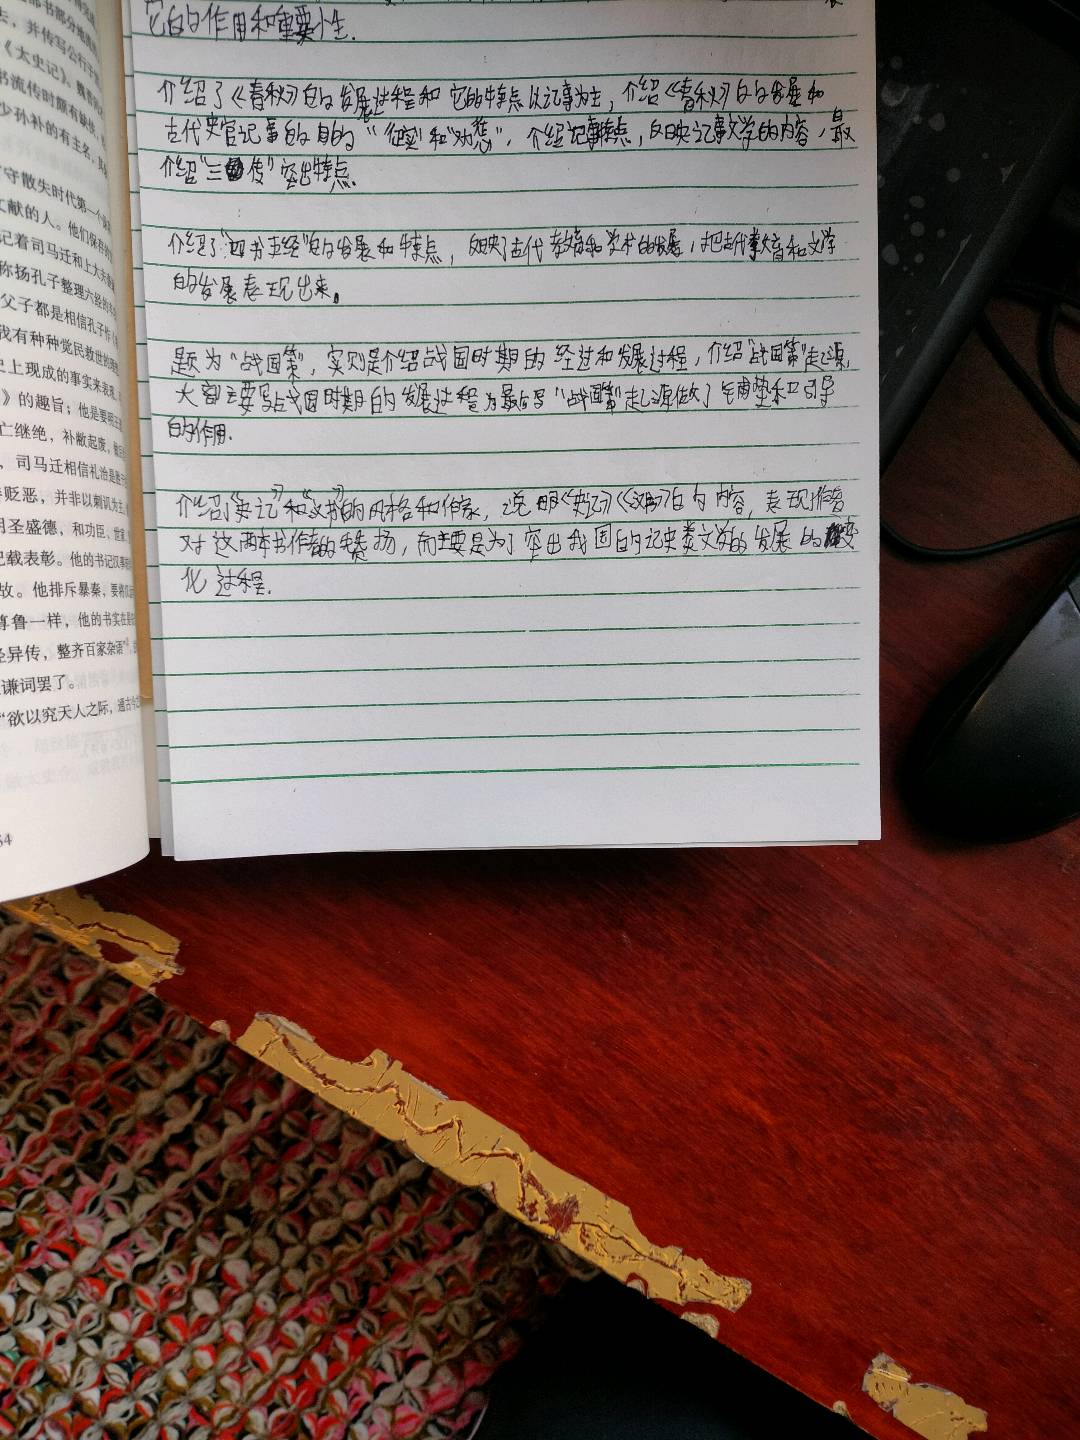 部书部分地
去，并传写公行
《太史记》。魏晋
书流传时颇有缺
少孙补的有主名，其
守散失时代第一个
文献的人。他们保存的
记着司马迁和上大夫
称扬孔子整理六经的
父子都是相信孔子作
我有种种觉民救世的
史上现成的事实来表
》的趣旨；他是要明王
亡继绝，补敝起废，
，司马迁相信礼治是
善贬恶，并非以刺讥为主，
明圣盛德，和功臣、世家、
记载表彰。他的书记汉事
故。他排斥暴秦，要将
尊鲁一样，他的书实在
经异传，整齐百家杂语”，
谦词罢了。
“欲以究天人之际，通古今之
54
它的作用和重要小生.
介绍了《春秋》的发展过程和它的特点以记事为主，介绍《春秋》的发展和
古代史官记事的目的“征实”和“劝惩”，介绍记事特点，反映记事文学的内容，最
介绍“三传”突出特点.
介绍了“四书五经”的发展和特点，反映了古代教育和学术的发展，把古代教育和文学
的发展表现出来。
题为“战国策”，实则是介绍战国时期的经过和发展过程，介绍“战国策”起源，
大部主要写战国时期的发展过程为最后写“战国策”起源做了铺垫和引导
的作用.
介绍《史记》和《汉书》的风格和作家，说明《史记》《汉书》的内容，表现作者
对这两本书作者的赞扬，而主要是为了突出我国的记史类文学的发展的变
化过程.